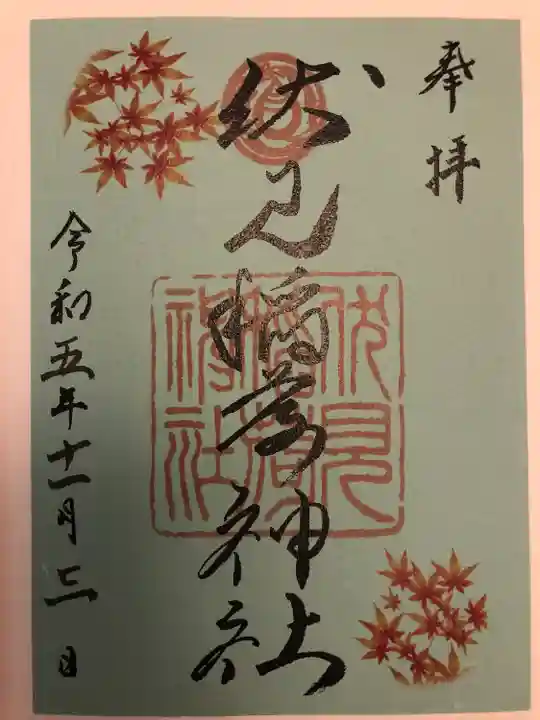 奉拝
伏見稲荷神社
伏見稲荷神社
令和五年十一月二日